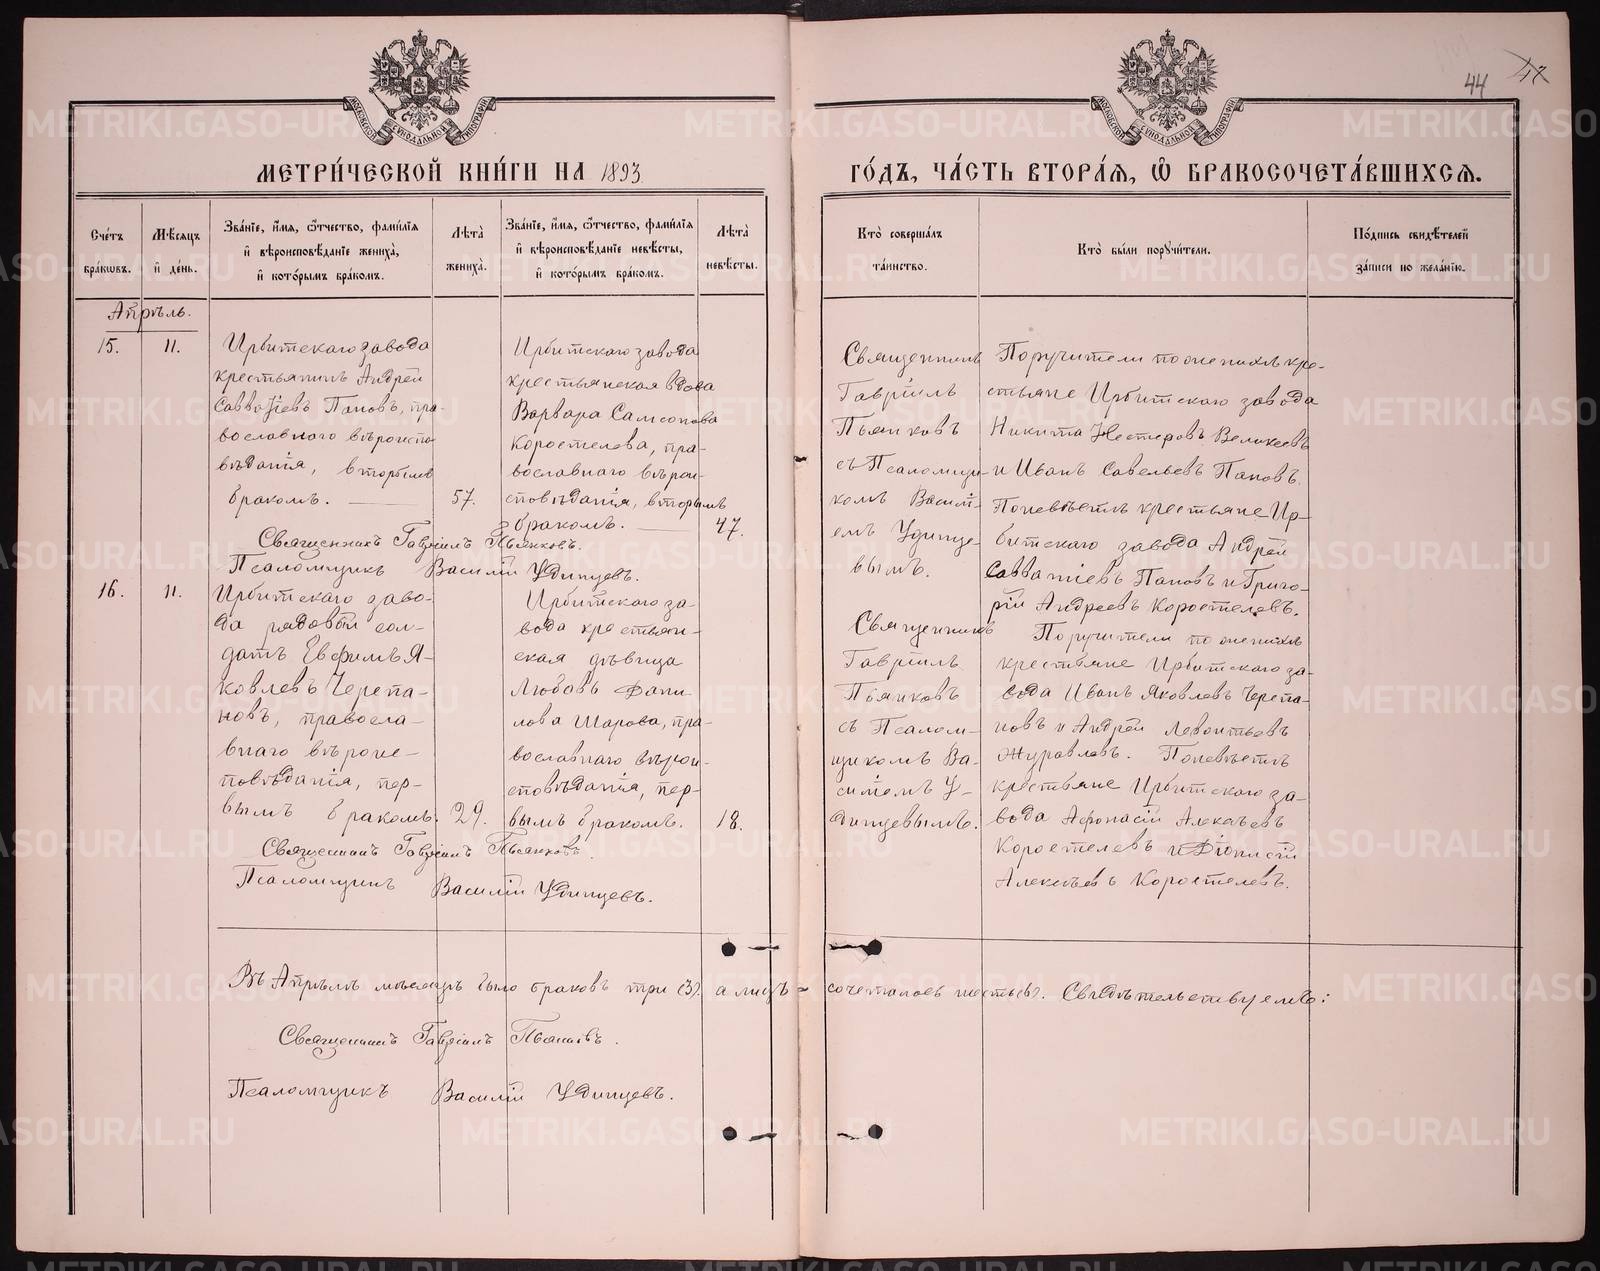 44
МЕТРИ́ЧЕСКОЙ КНИ́ГИ НА 1893
ГО́ДЪ, ЧА́СТЬ ВТОРА́Я, Ѽ БРАКОСОЧЕТА́ВШИХСЯ.
Сче́тъ браковъ.
Мѣсяцъ и де́нь.
Зва́нїе, и҆́мя, ѻ҆́тчество, фами́лїя
и҆ вѣроисповѣ́данїе жениха̀,
и҆ кото́рымъ бра́комъ.
Лѣта̀ жениха̀.
Зва́нїе, и҆́мя, ѻ҆́тчество, фами́лїя
и҆ вѣроисповѣ́данїе невѣ́сты,
и҆ кото́рымъ бра́комъ.
Лѣта̀ невѣ́сты.
Кто̀ соверша́лъ
та́инство.
Кто̀ бы́ли порꙋчи́тели.
По́дпись свидѣ́телей
за́писи по жела́нїю.
Апрѣль.
15.
11.
Ирбитскаго завода
крестьянинъ Андрей
Савватіевъ Пановъ, пра-
вославнаго вѣроиспо
вѣданія, вторымъ
бракомъ.
57.
Ирбитскаго завода
крестьянская вдова
Варвара Самсонова
Коростелева, пра-
вославнаго вѣрои-
сповѣданія, вторымъ
бракомъ.
47.
Священникъ Гавріилъ Пьянковъ.
Псаломщикъ Василій Удинцевъ.
Священникъ
Гавріилъ
Пьянковъ
съ Псаломщи-
комъ Васил-
емъ Удинце-
вымъ.
Поручители по женихѣ кре-
стьяне Ирбитскаго завода
Никита Нестеровъ
и Иванъ Савельевъ Пановъ.
По невѣстѣ крестьяне Ир-
битскаго завода Андрей
Савватіевъ Пановъ и Григо-
рій Андреевъ Коростелевъ.
16.
11.
Ирбитскаго заво-
да рядовый сол-
датъ Евфимъ Я-
ковлевъ Черепа-
новъ, правосла-
внаго вѣроис-
повѣданія, пер-
вымъ бракомъ.
29.
Ирбитскаго за-
вода крестьян-
ская дѣвица
Любовь Дани-
лова Шарова, пра-
вославнаго вѣрои-
сповѣданія, пер-
вымъ бракомъ.
18.
Священникъ Гавріилъ Пьянковъ.
Псаломщикъ Василій Удинцевъ.
Священникъ
Гавріилъ
Пьянковъ
съ Псалом-
щикомъ Ва-
силіемъ У-
динцевымъ.
Поручители по женихѣ
крестьяне Ирбитскаго за-
вода Иванъ Яковлевъ Черепа-
новъ и Андрей Леонтьевъ
Журавлевъ. По невѣстѣ
крестьяне Ирбитскаго за-
вода Афонасій Алексѣевъ
Коростелевъ и Діонисій
Алексѣевъ Коростелевъ.
Въ Апрѣлѣ мѣсяцѣ было браковъ три (3). а лицъ = сочеталось шесть (6). Свидѣтельствуемъ:
Священникъ Гавріилъ Пьянковъ.
Псаломщикъ Василій Удинцевъ.
METRIKI.GASO-URAL.RU